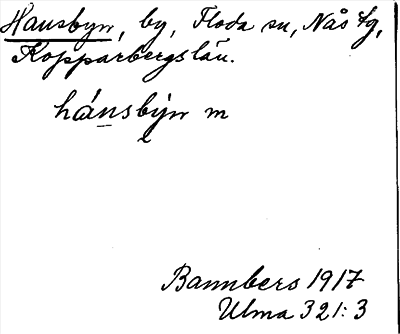 Hansbyn, by, Floda sn, Nås tg,
Kopparbergs län.
hánsbỳn m
Bannbers 1917
Ulma 321:3